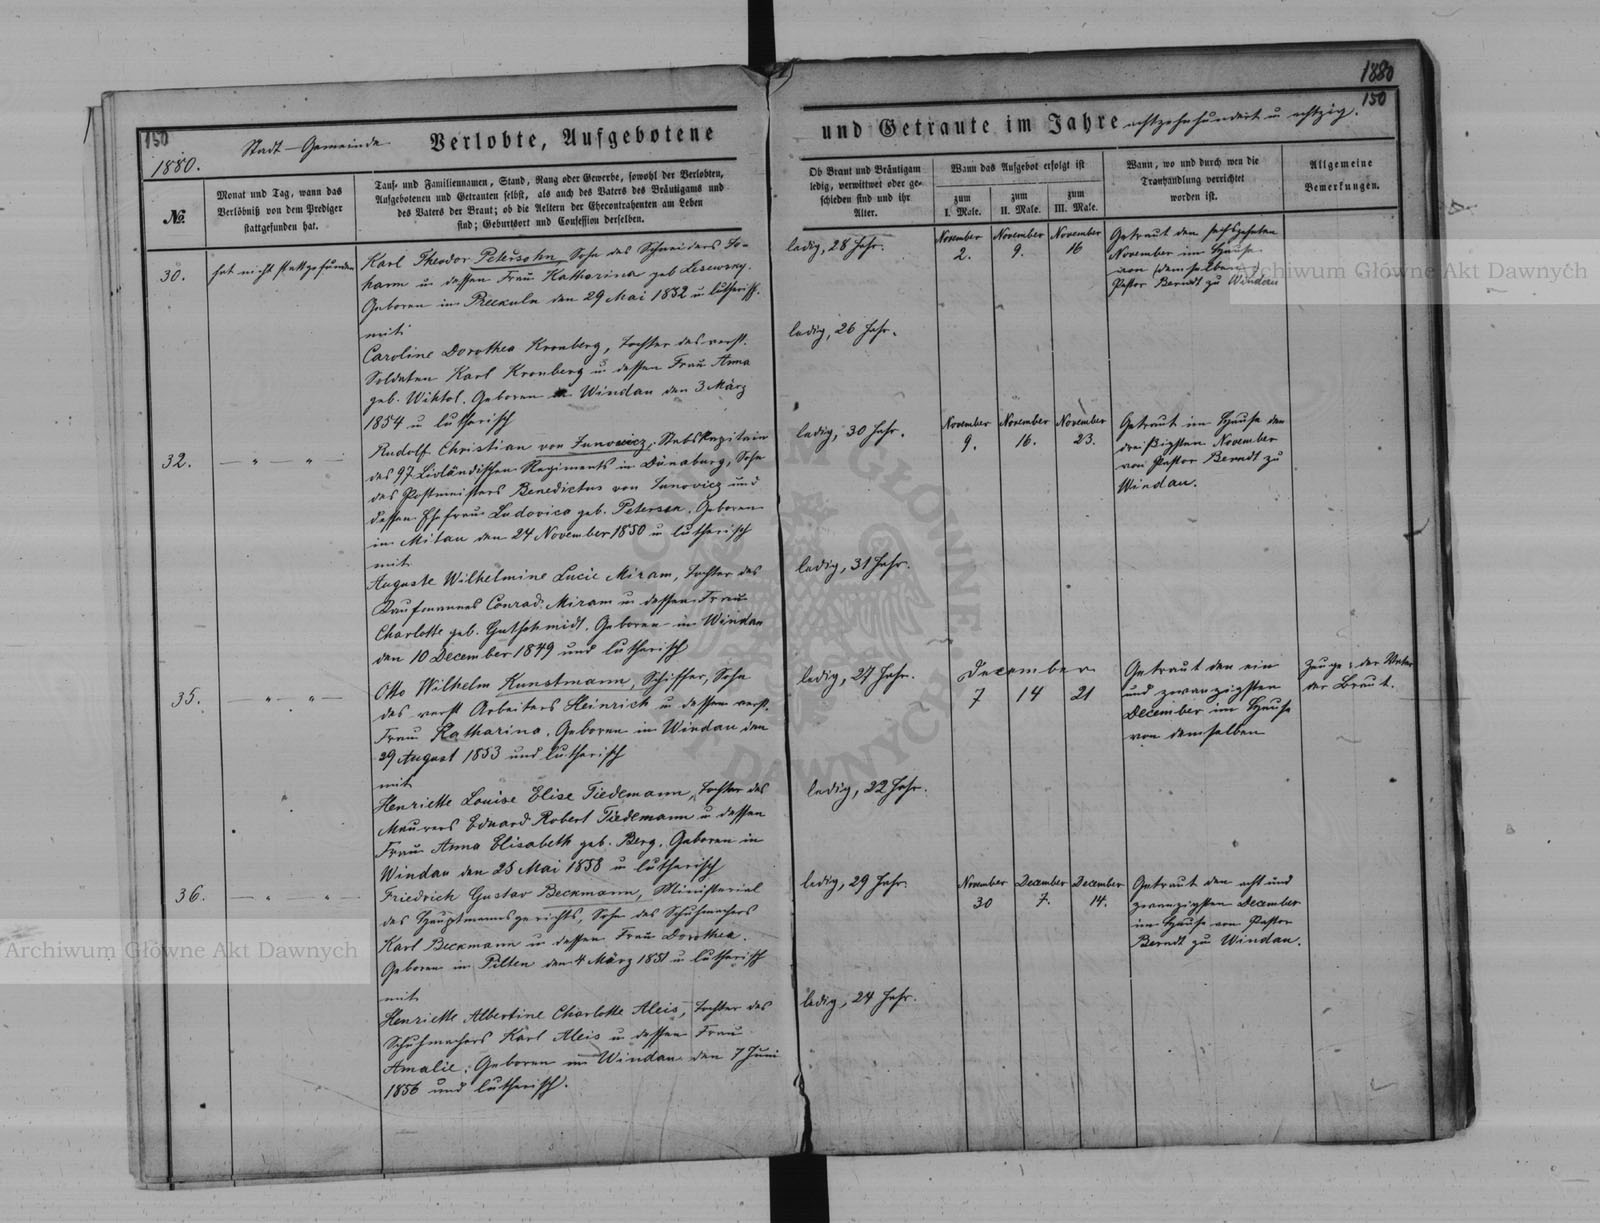 150
1880.
Stadt-Gemeinde
Verlobte, Aufgebotene
№.
Monat und Tag, wann das
Verlöbniß von dem Prediger
stattgefunden hat.
Tauf- und Familiennamen, Stand, Rang oder Gewerbe, sowohl der Verlobten,
Aufgebotenen und Getrauten selbst, als auch des Vaters des Bräutigams und
des Vaters der Braut; ob die Aeltern der Ehecontrahenten am Leben
sind; Geburtsort und Confession derselben.
30.
hat nicht stattgefunden
Karl Theodor Petersohn, Sohn des Schneiders Jo-
hann u dessen Frau Katharina geb Lesewsky.
Geboren in Preekuln den 29 Mai 1852 u lutherisch.
mit
Caroline Dorothea Kronberg, Tochter des verst.
Soldaten Karl Kronberg u dessen Frau Anna
geb. Wiktol. Geboren in Windau den 3 März
1854 u lutherisch
32.
— " — " —
Rudolf Christian von Junowicz, Stabskapitain
des 97 Livländischen Regiments in Dünaburg, Sohn
des Postministers Benedictus von Junovicz und
dessen Ehefrau Ludovica geb. Petersen. Geboren
in Mitau den 24 November 1850 u lutherisch
mit
Auguste Wilhelmine Lucie Miram, Tochter des
Kaufmannes Conrad Miram u dessen Frau
Charlotte geb. Gutschmidt. Geboren in Windau
den 10 December 1849 und lutherisch
35.
— " — " —
Otto Wilhelm Kunstmann, Schiffer, Sohn
des verst Arbeiters Heinrich u dessen verst.
Frau Katharina. Geboren in Windau den
29 August 1853 und lutherisch
mit
Henriette Louise Elise Tiedemann, Tochter des
Maurers Eduard Robert Tiedemann u dessen
Frau Anna Elisabeth geb. Berg. Geboren in
Windau den 25 Mai 1858 u lutherisch
36.
— " — " —
Friedrich Gustav Beckmann, Ministerial
des Hauptmannsgerichts, Sohn des Schuhmachers
Karl Beckmann u dessen Frau Dorothea.
Geboren in Pilten den 4 März 1851 u lutherisch
mit
Henriette Albertine Charlotte Aleis, Tochter des
Schuhmachers Karl Aleis u dessen Frau
Amalie. Geboren in Windau den 7 Juni
1856 und lutherisch.
1880
150
und Getraute im Jahre achtzehnhundert u achtzig.
Ob Braut und Bräutigam
ledig, verwittwet oder ge-
schieden sind und ihr
Alter.
Wann das Aufgebot erfolgt ist
zum
I. Male.
zum
II. Male.
zum
III. Male.
Wann, wo und durch wen die
Trauhandlung verrichtet
worden ist.
Allgemeine
Bemerkungen.
ledig, 28 Jahr.
November
2.
November
9.
November
16
Getraut den sechszehnten
November im Hause
von demselben
Pastor Berndt zu Windau
ledig, 26 Jahr.
ledig, 30 Jahr.
November
9.
November
16.
November
23.
Getraut im Hause den
dreißigsten November
von Pastor Berndt zu
Windau.
ledig, 31 Jahr.
ledig, 27 Jahr.
December
7 14 21
Getraut den ein
und zwanzigsten
December im Hause
von demselben
Zeuge: der Vater
der Braut.
ledig, 22 Jahr.
ledig, 29 Jahr.
November
30
December
7.
December
14.
Getraut den acht und
zwanzigsten December
im Hause von Pastor
Berndt zu Windau.
ledig, 24 Jahr.
Archiwum Główne Akt Dawnych
Archiwum Główne Akt Dawnych